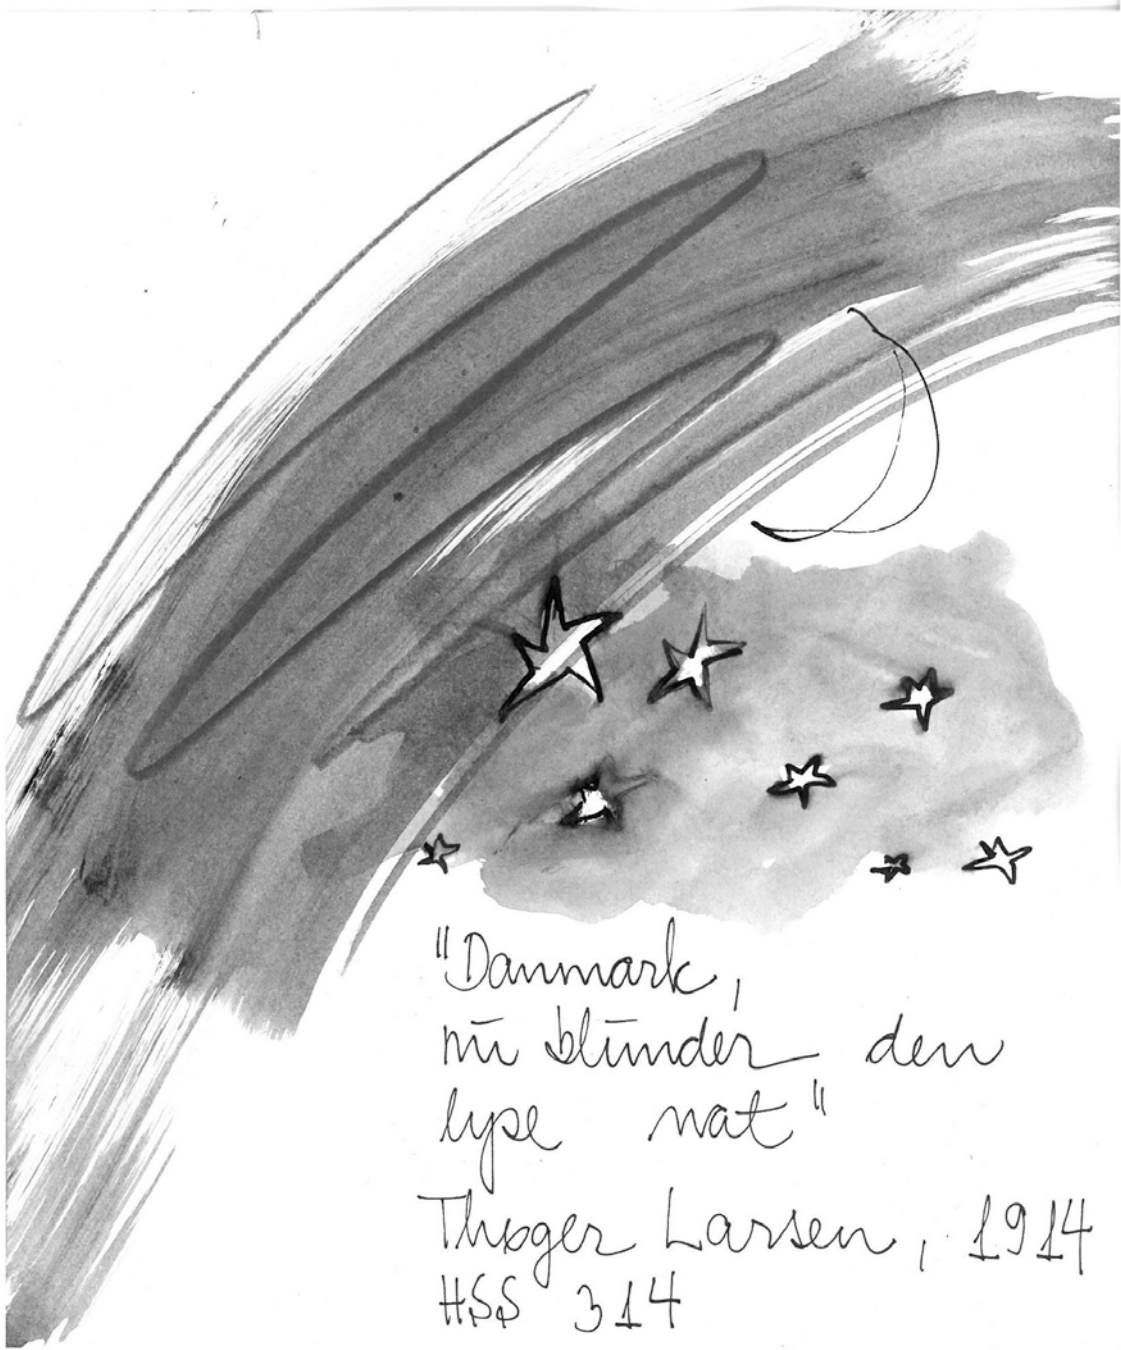 "Danmark,
nū blūnder den
lyse nat"
Thøger Larsen, 1914
HSS 314